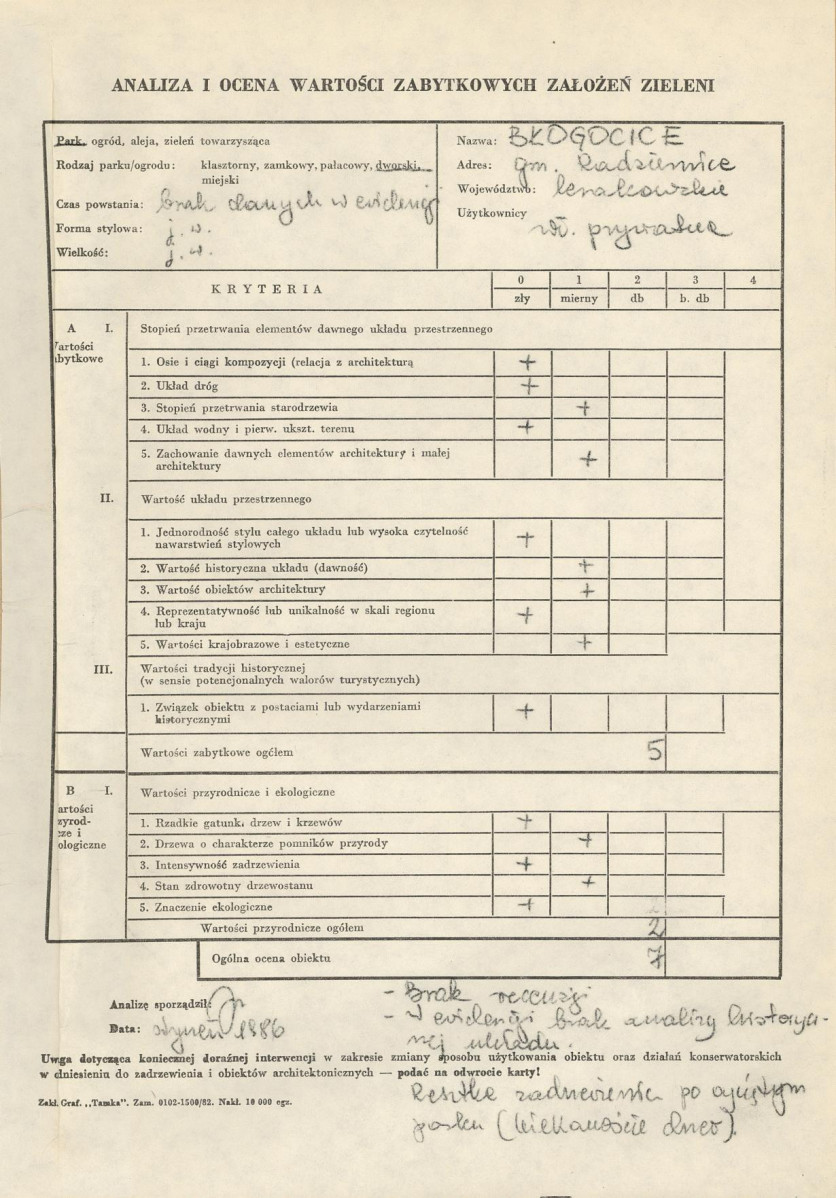 ANALIZA I OCENA WARTOŚCI ZABYTKOWYCH ZAŁOŻEŃ ZIELENI
Park, ogród, aleja, zieleń towarzysząca
Rodzaj parku/ogrodu: klasztorny, zamkowy, pałacowy, dworski,
miejski
Czas powstania: brak danych w ewidencji
Forma stylowa: j. w.
Wielkość: j. w.
Nazwa: BŁOGOCICE
Adres: gm. Radziemice
Województwo: krakowskie
Użytkownicy
wł. prywatna
KRYTERIA
0 1 2 3 4
zły mierny db b. db
A I. Stopień przetrwania elementów dawnego układu przestrzennego
artości
bytkowe
1. Osie i ciągi kompozycji (relacja z architekturą +
2. Układ dróg +
3. Stopień przetrwania starodrzewia +
4. Układ wodny i pierw. ukszt. terenu +
5. Zachowanie dawnych elementów architektury i małej
architektury +
II. Wartość układu przestrzennego
1. Jednorodność stylu całego układu lub wysoka czytelność
nawarstwień stylowych +
2. Wartość historyczna układu (dawność) +
3. Wartość obiektów architektury +
4. Reprezentatywność lub unikalność w skali regionu
lub kraju +
5. Wartości krajobrazowe i estetyczne +
III. Wartości tradycji historycznej
(w sensie potencjonalnych walorów turystycznych)
1. Związek obiektu z postaciami lub wydarzeniami
historycznymi +
Wartości zabytkowe ogółem 5
B I. Wartości przyrodnicze i ekologiczne
artości
zyrod-
cze i
ologiczne
1. Rzadkie gatunk. drzew i krzewów +
2. Drzewa o charakterze pomników przyrody +
3. Intensywność zadrzewienia +
4. Stan zdrowotny drzewostanu +
5. Znaczenie ekologiczne +
Wartości przyrodnicze ogółem 2
Ogólna ocena obiektu 7
Analizę sporządził:
Data: styczeń 1986
- Brak
- W ewidencji brak analizy historycz-
nej układu.
Uwga dotycząca koniecznej doraźnej interwencji w zakresie zmiany sposobu użytkowania obiektu oraz działań konserwatorskich
w dniesieniu do zadrzewienia i obiektów architektonicznych — podać na odwrocie karty!
Resztka zadrzewienia po
parku (kilkanaście drzew).
Zakł. Graf. „Tamka". Zam. 0102-1500/82. Nakł. 10 000 egz.